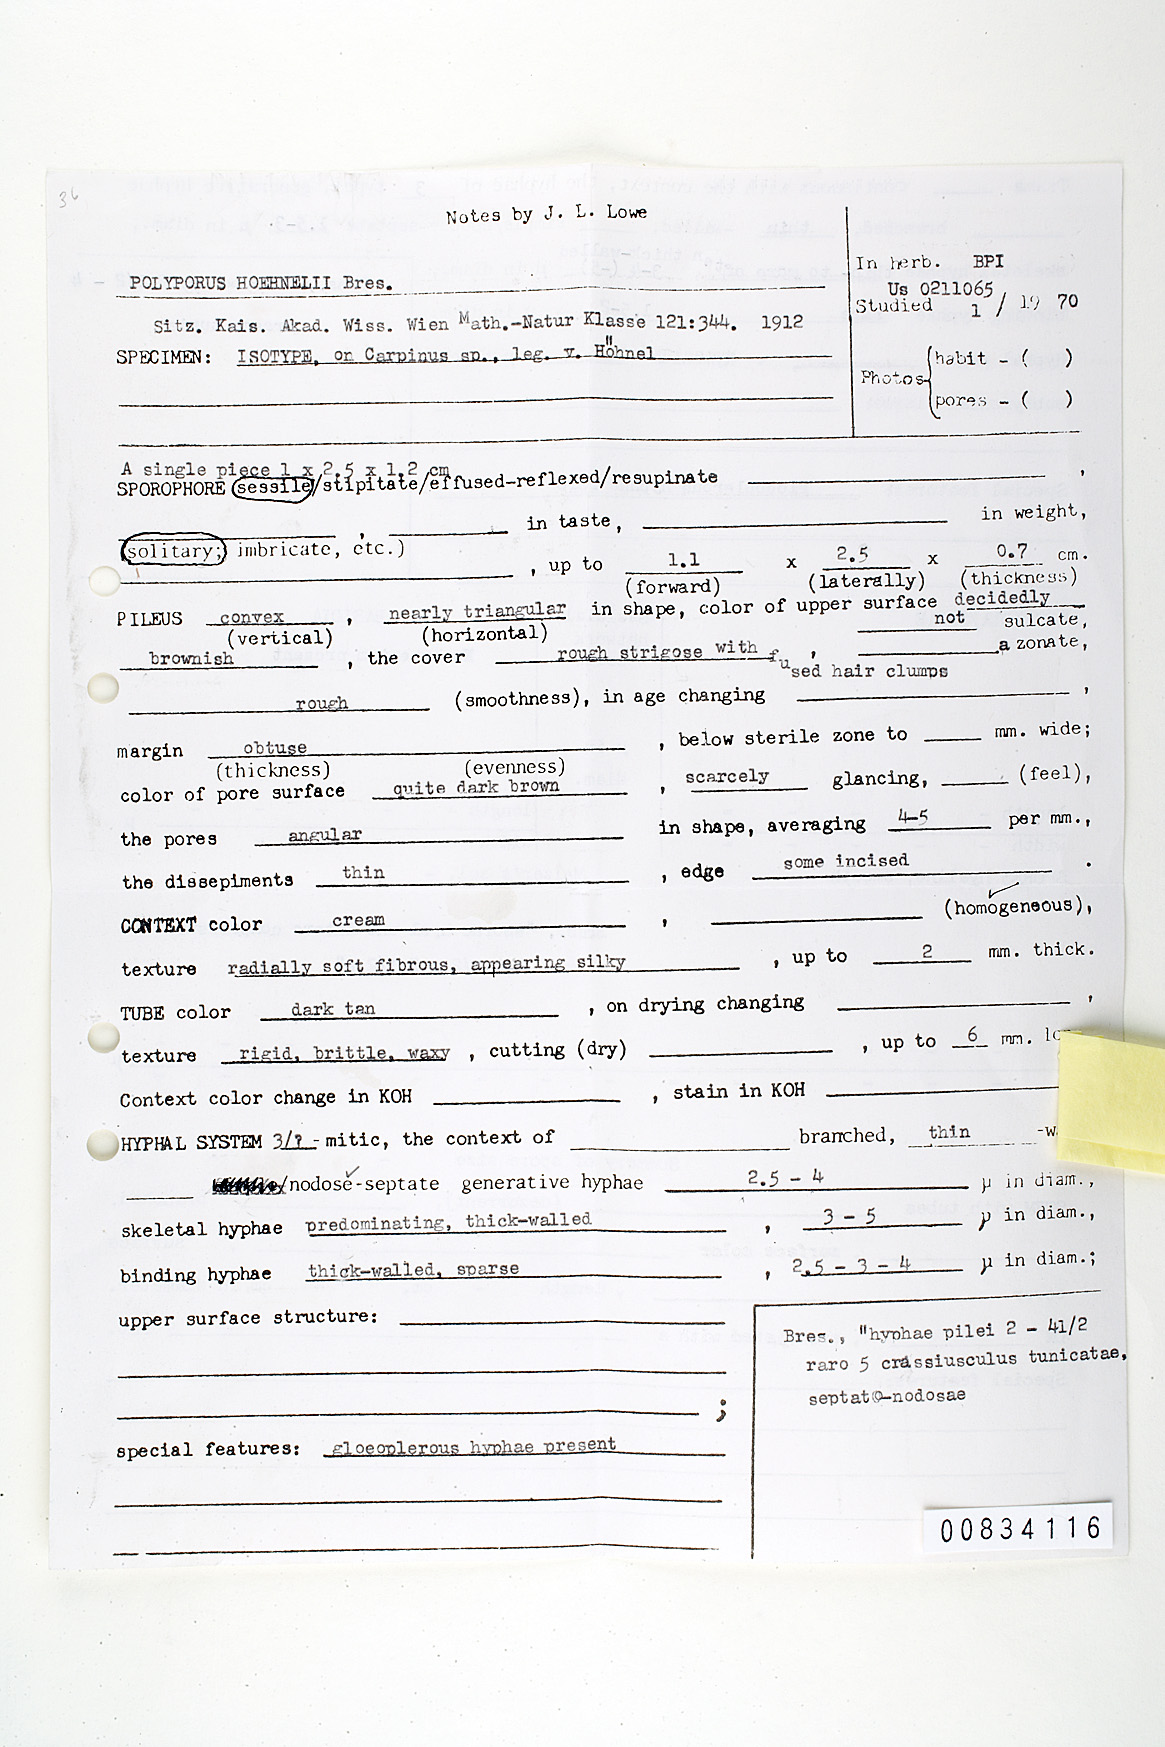 36
Notes by J. L. Lowe
In herb. BPI
Us 0211065
Studied 1 / 19 70
POLYPORUS HOEHNELII Bres.
Sitz. Kais. Akad. Wiss. Wien Math.-Natur Klasse 121:344. 1912
SPECIMEN: ISOTYPE, on Carpinus sp., leg. v. Höhnel
Photos
habit - ( )
pores - ( )
A single piece 1 x 2.5 x 1.2 cm
SPOROPHORE (sessile/stipitate/effused-reflexed/resupinate ,
, in taste, in weight,
(solitary; imbricate, etc.)
, up to 1.1 x 2.5 x 0.7 cm.
(forward) (laterally) (thickness)
PILEUS convex , nearly triangular in shape, color of upper surface decidedly
(vertical) (horizontal) not sulcate,
brownish , the cover rough strigose with fused hair clumps , azonate,
rough (smoothness), in age changing ,
margin obtuse , below sterile zone to mm. wide;
(thickness) (evenness)
color of pore surface quite dark brown , scarcely glancing, (feel),
the pores angular in shape, averaging 4-5 per mm.,
the dissepiments thin , edge some incised .
CONTEXT color cream , (homogeneous),
texture radially soft fibrous, appearing silky , up to 2 mm. thick.
TUBE color dark tan , on drying changing ,
texture rigid, brittle, waxy , cutting (dry) , up to 6 mm. lo
Context color change in KOH , stain in KOH
HYPHAL SYSTEM 3/? - mitic, the context of branched, thin -w
/nodose-septate generative hyphae 2.5 - 4 µ in diam.,
skeletal hyphae predominating, thick-walled , 3 - 5 µ in diam.,
binding hyphae thick-walled, sparse , 2.5 - 3 - 4 µ in diam.;
upper surface structure:
;
special features: gloeoplerous hyphae present
Bres., "hyphae pilei 2 - 41/2
raro 5 crassiusculus tunicatae,
septato-nodosae
00834116